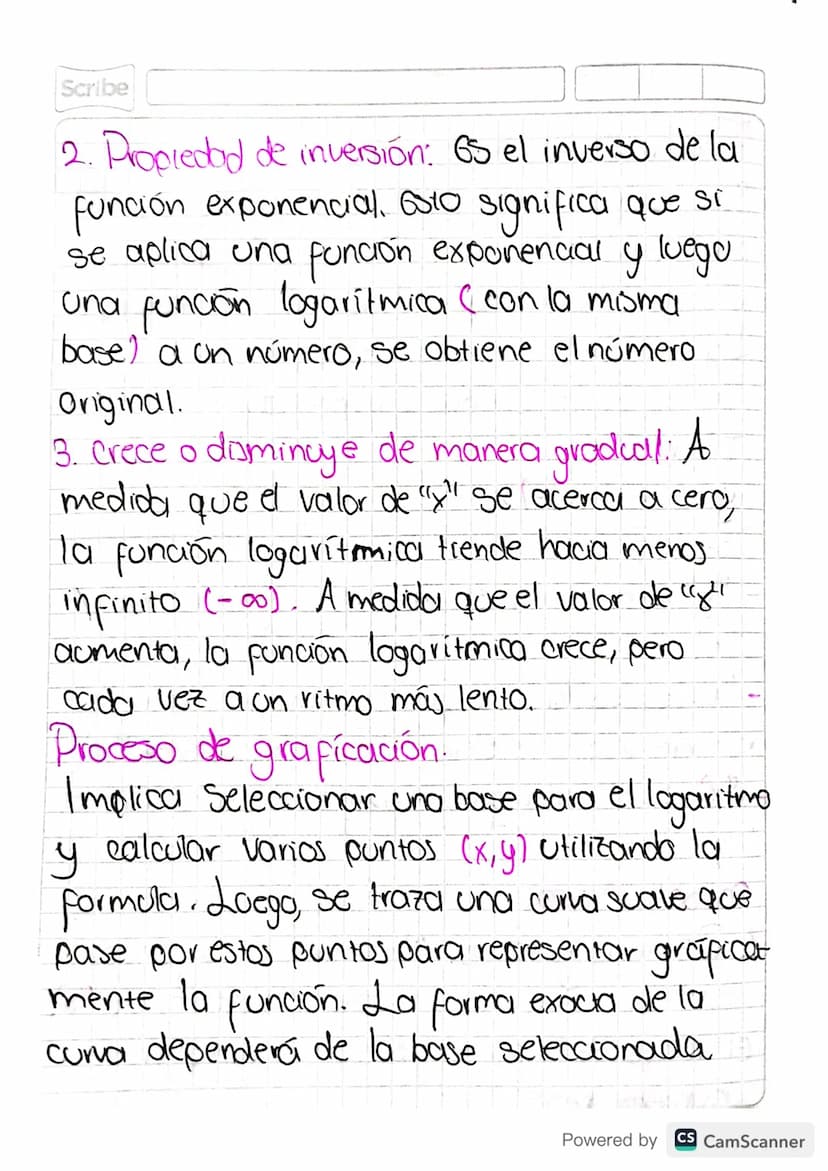 Scribe
2. Propiedad de inversión: Es el inverso de la
función exponencial. Esto significa que si
se aplica una función exponencial y luego
una función logarítmica (con la misma
base) a un número, se obtiene el número
Original.
3. Crece o disminuye de manera gradual: A
medida que el valor de "x" se acerca a cero,
la función logarítmica tiende hacia menos
infinito (-∞). A medida que el valor de "x"
aumenta, la función logarítmica crece, pero
cada vez a un ritmo más lento.
Proceso de graficación.
Implica Seleccionar una base para el logaritmo
y calcular varios puntos (x,y) utilizando la
formula. Luego, se traza una curva suave que
pase por estos puntos para representar gráfica-
mente la función. La forma exacta de la
curva dependerá de la base seleccionada
Powered by CS CamScanner